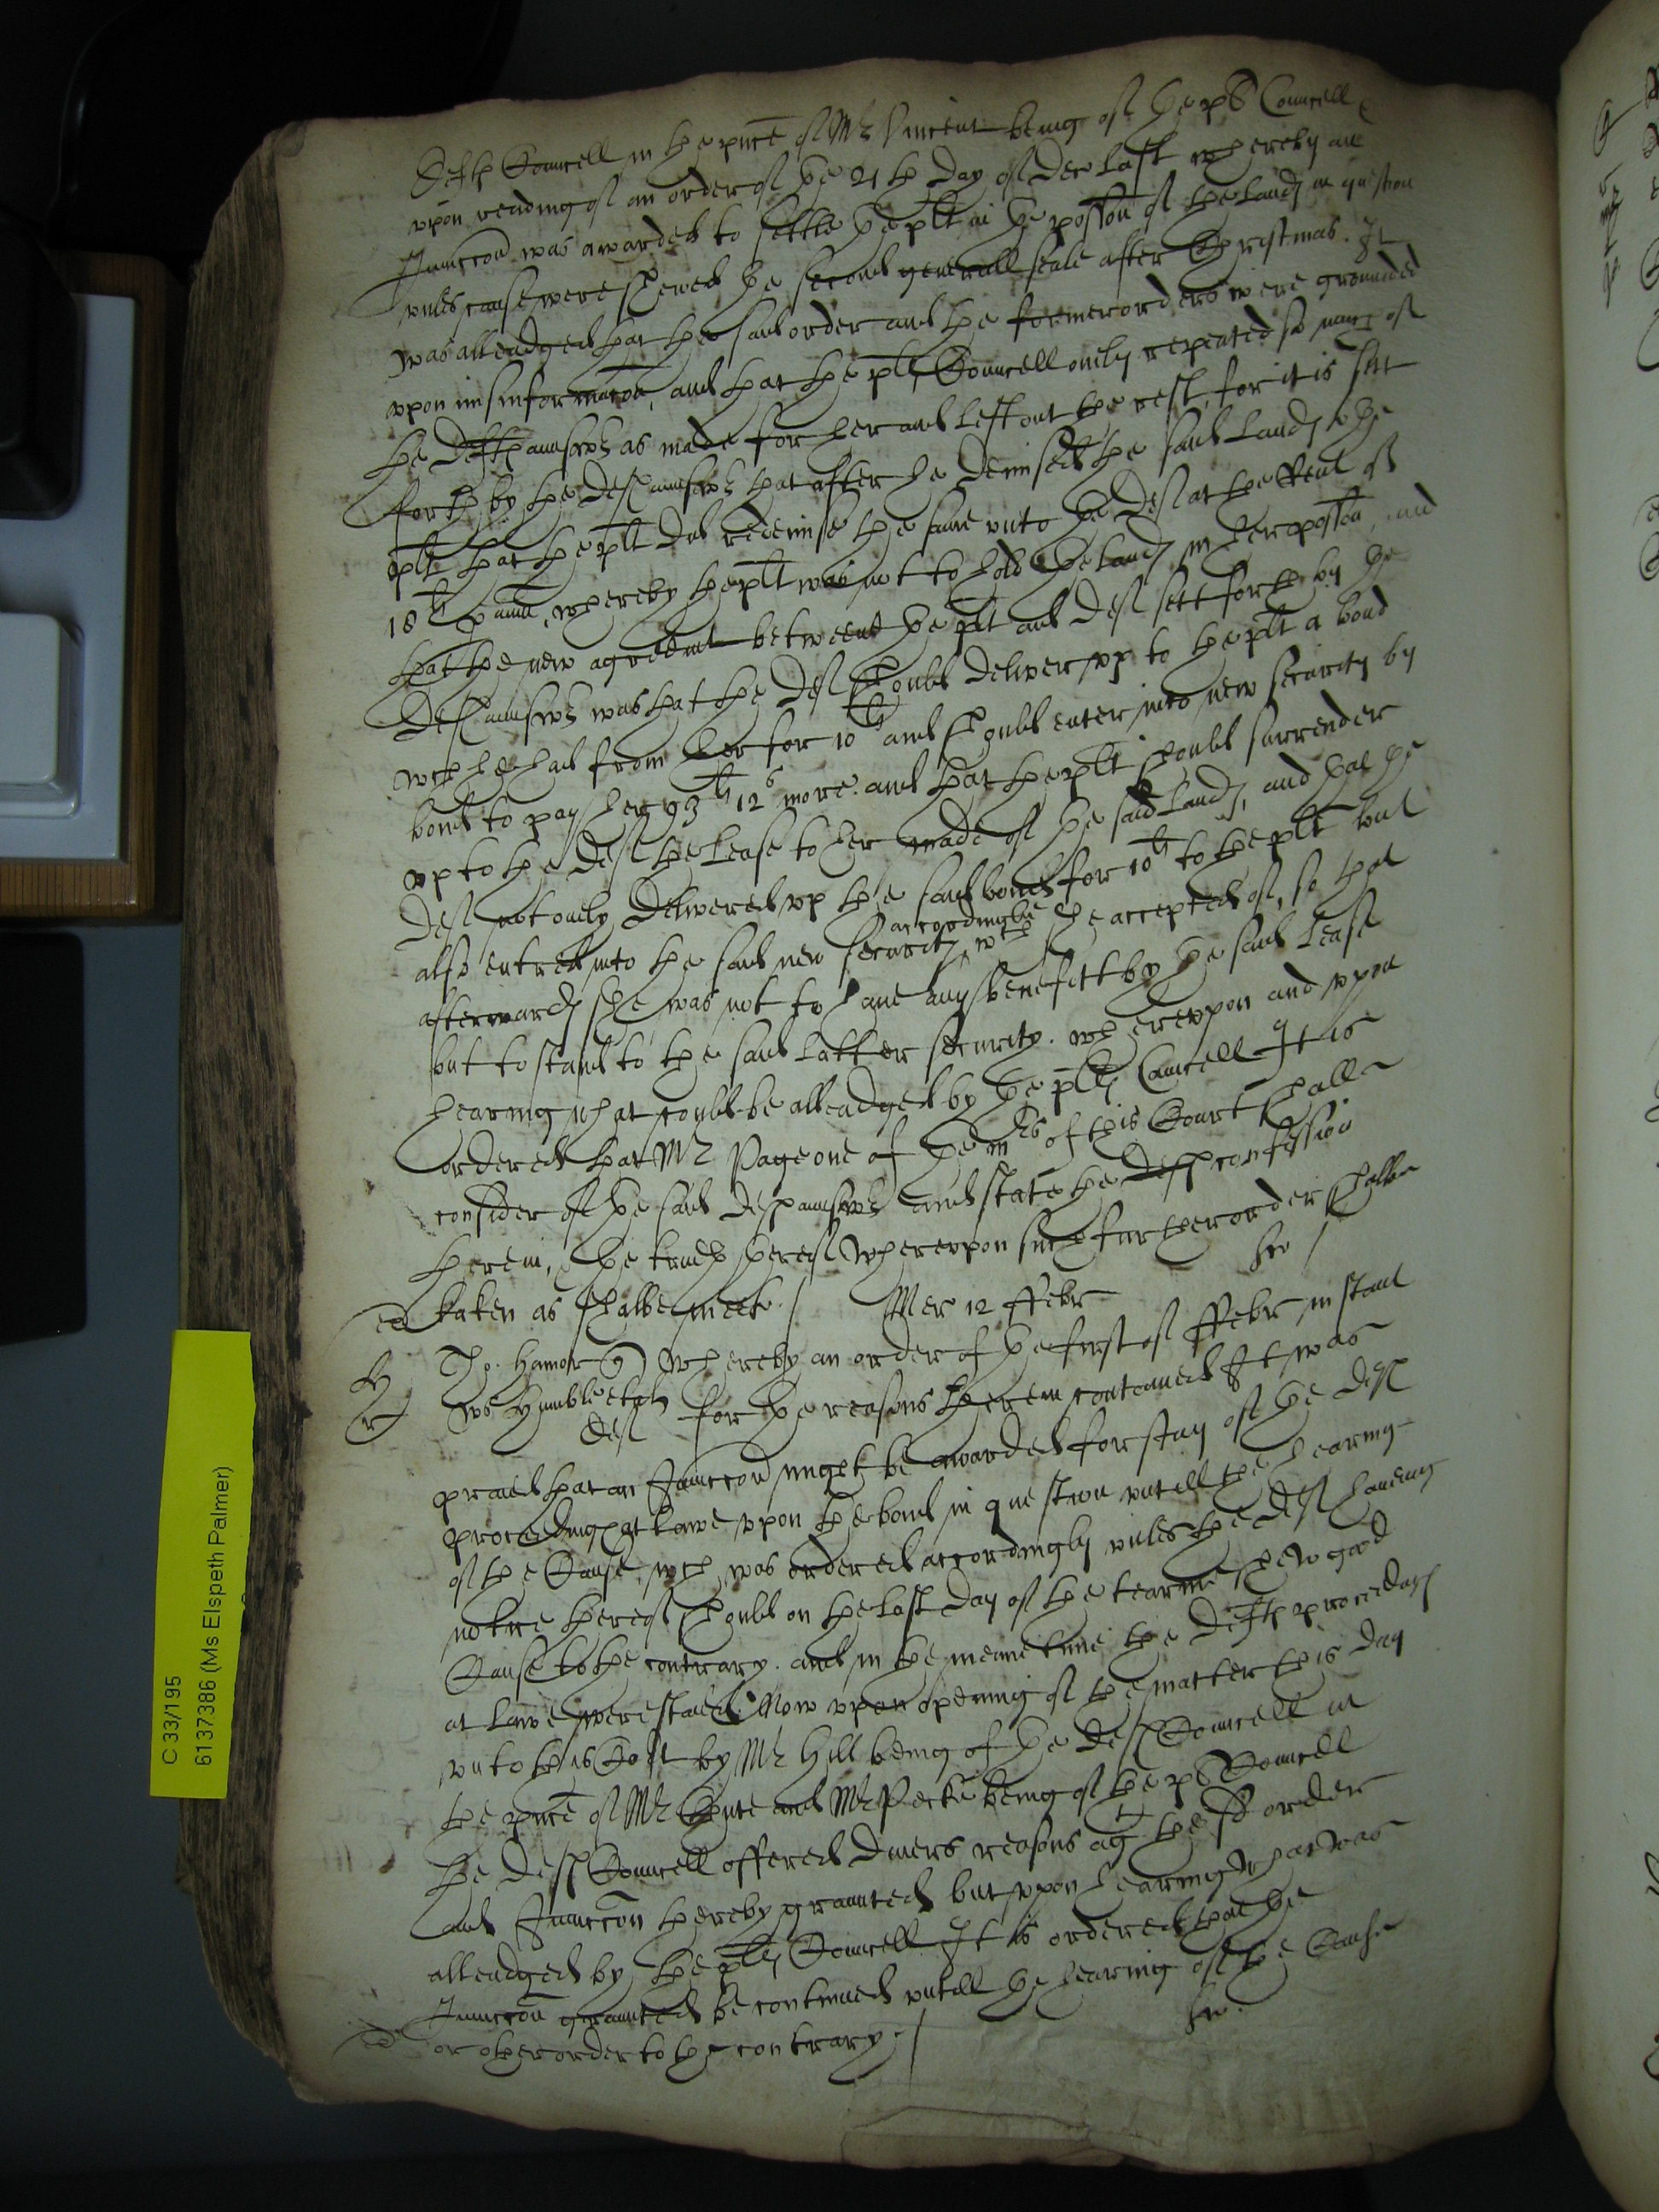 Defts Councell in the pnce of Mr Vincent being of the pls Councell
vpon reading of an order of the 21th day of Dec last whereby an
Iniuccon was awarded to settle the plt in the possion of the lands in question
vnles cause were shewed the second generall seale after Christmas. It
was alleadged that the said order and the former orders were grounded
vpon misinformacon, and that the plts Councell onely repeated so much of
the Defts answere as made for her and left out the rest, for it is sett
forth by the Defts answere that after he demised the said lands to the
plt that the plt did redemise the same vnto the Deft at the Rent of
18li p ann, whereby the plt was not to hold the lands in her possion, and
that the new agreemt betweene the plt and Deft sett forth by the
Defts answere was that the Deft should deliver vp to the plt a bond
wch he had from her for 10li and should enter into new security by
bond to pay her 93li 12s more. and that the plt should surrender
vp to the Deft the lease to her made of the said lands, and that the
Deft not onely delivered vp the said bond for 10li to the plt but
also entred into the said new security accordinglie wch she accepted of, so that
afterwards she was not to haue any benefitt by the said lease
but to stand to the said latter security. wherevpon and vpon
hearing what could be alleadged by the plts Councell It is
ordered that Mr Page one of the mrs of this Court shall
consider of the said Defts answere and state the Defts confession
therein, & the truth thereof wherevpon such further order shalbe
taken as shalbe meet /
Mer 12 ffebr
Tho. Hamor q
vs Humbletoth
Deft
Whereby an order of the first of ffebr instant
for the reasons therein conteined It was
praied that an Iniuccon might be awarded for stay of the Defts
proceedings at lawe vpon the bond in question vntill the hearing
of the Cause, wch was ordered accordingly vnles the Deft haueing
notice thereof should on the last day of the tearme shew good
Cause to the contrary. and in the meane time the Defts proceedings
at lawe were staied. Now vpon opening of the matter this day
vnto this Cort by Mr Hill being of the Defts Councell in
the pnce of Mr Chute and Mr Pecke being of the pls Councell
the Defts Councell offered divers reasons agt the sd order
and Iniuccon thereby graunted but vpon hearing what was
alleadged by the plts Councell It is ordered that the
Iniuccon graunted be continued vntill the hearing of the Cause
or other order to the contrary. /
C 33/195
6137386 (Ms Elspeth Palmer)